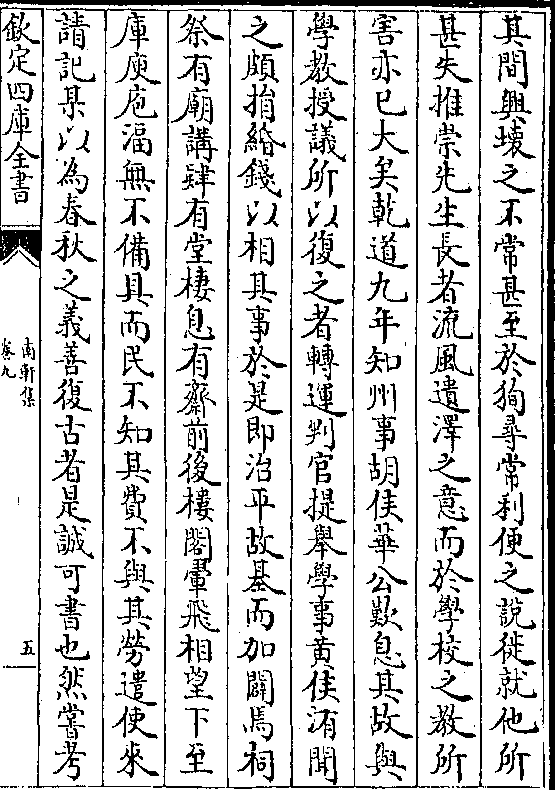 其間興壊之不常甚至於狥尋常利便之說徙就他所
甚失推崇先生長者流風遺澤之意而於學校之教所
害亦已大矣乾道九年知州事胡侯華公歎息其故與
學教授議所以復之者轉運判官提舉學事黄侯洧聞
之頗捐緡錢以相其事於是即治平故基而加闢焉祠
祭有廟講肄有堂棲息有齋前後樓閣翬飛相望下至
庫庾庖湢無不備具而民不知其費不與其勞遣使來
請記某以為春秋之義善復古者是誠可書也然嘗考
欽定四庫全書
南軒集
卷九
五